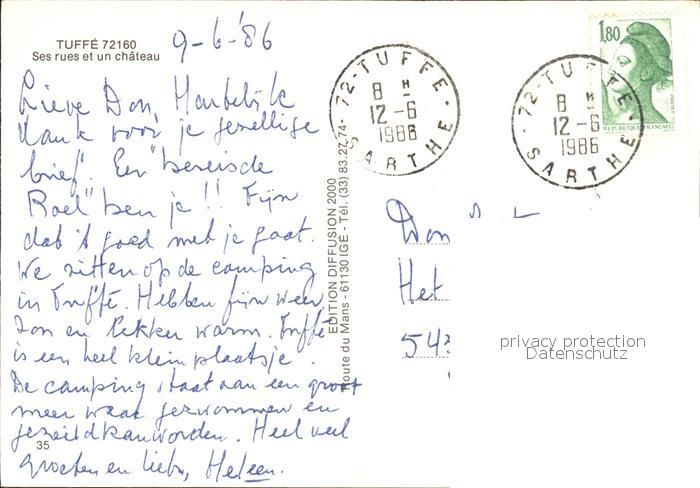 TUFFÉ 72160
Ses rues et un château
9-6-'86
Lieve Don, Hartelijk
dank voor je gezellige
brief. Een "bereisde
Roel" ben je!! Fijn
dat 't goed met je gaat.
We zitten op de camping
in Tuffé. Hebben fijn weer
zon en lekker warm. Tuffé
is een heel klein plaatsje.
De camping staat aan een groot
meer waar gezwommen en
gezeild kan worden. Heel veel
groeten en liefs, Heleen.
35
EDITION DIFFUSION 2000
Route du Mans - 61130 IGÉ - Tél. (33) 83.27.74
72-TUFFE
8 H
12-6
1986
SARTHE
72-TUFFE
8 H
12-6
1986
SARTHE
1,80
REPUBLIQUE FRANÇAISE
Don
Het
543
privacy protection
Datenschutz